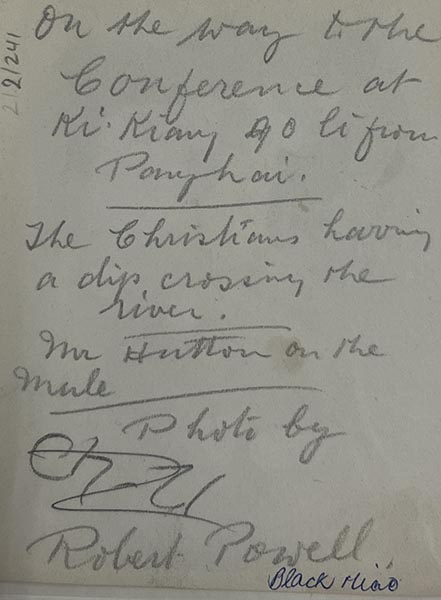 On the way to the
Conference at
Ki-Kiang 90 li from
Panghai.
The Christians having
a dip crossing the
river.
Mr Hutton on the
Mule
Photo by
Robert Powell.
Black Miao
2/241